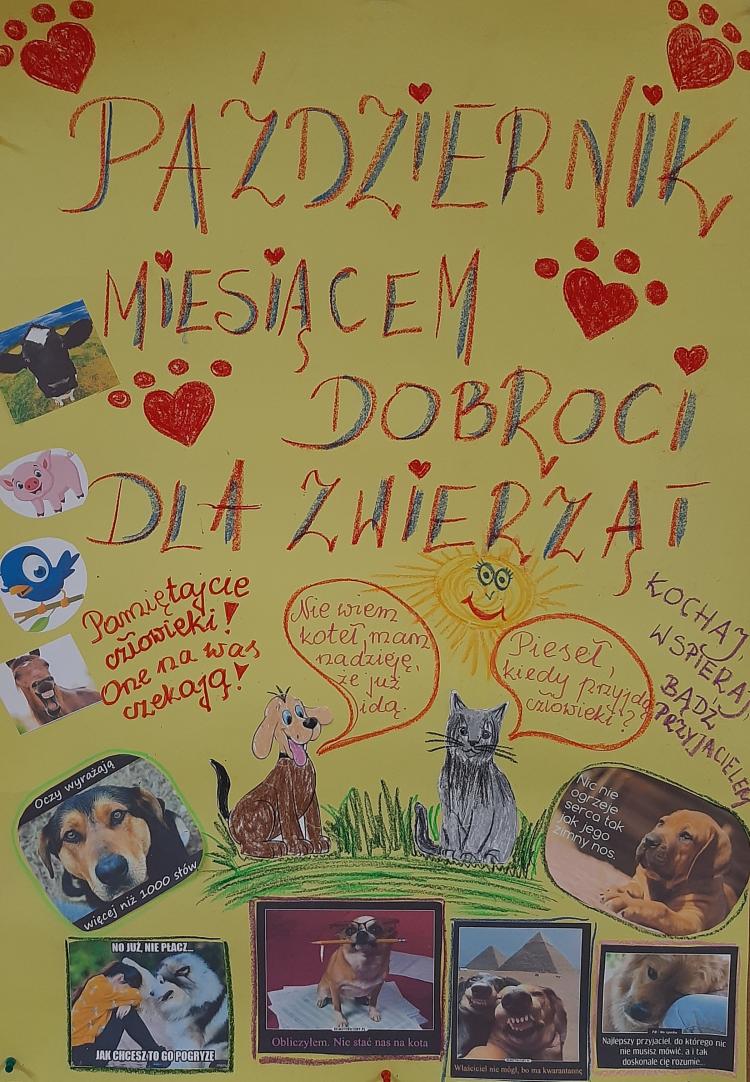 PAŹDZIERNIK
MIESIĄCEM
DOBROCI
DLA ZWIERZĄT
Pamiętajcie
człowieki!
One na was
czekają!
Nie wiem
koteł, mam
nadzieję,
że już
idą.
Pieseł,
kiedy przyjdą
człowieki?
KOCHAJ,
WSPIERAJ
BĄDŹ
PRZYJACIELEM
Oczy wyrażają
więcej niż 1000 słów
Nic nie
ogrzeje
serca tak
jak jego
zimny nos.
NO JUŻ, NIE PŁACZ...
JAK CHCESZ TO GO POGRYZĘ
Obliczyłem. Nie stać nas na kota
Właściciel nie mógł, bo ma kwarantannę
Najlepszy przyjaciel, do którego nic
nie musisz mówić, a i tak
doskonale cię rozumie...